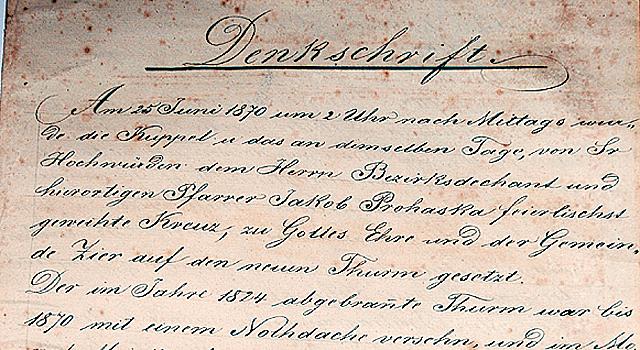 Denkschrift.
Am 25 Juni 1870 um 2 Uhr nach Mittags wur-
de die Kuppel u das an demselben Tage, von Sr
Hochwürden dem Herrn Bezirksdechant und
hierortigen Pfarrer Jakob Prohaska feierlischst
geweihte Kreuz, zu Gottes Ehre und der Gemein-
de Zier auf den neuen Thurm gesetzt.
Der im Jahre 1824 abgebrannte Thurm war bis
1870 mit einem Nothdache versehn, und im Mo-